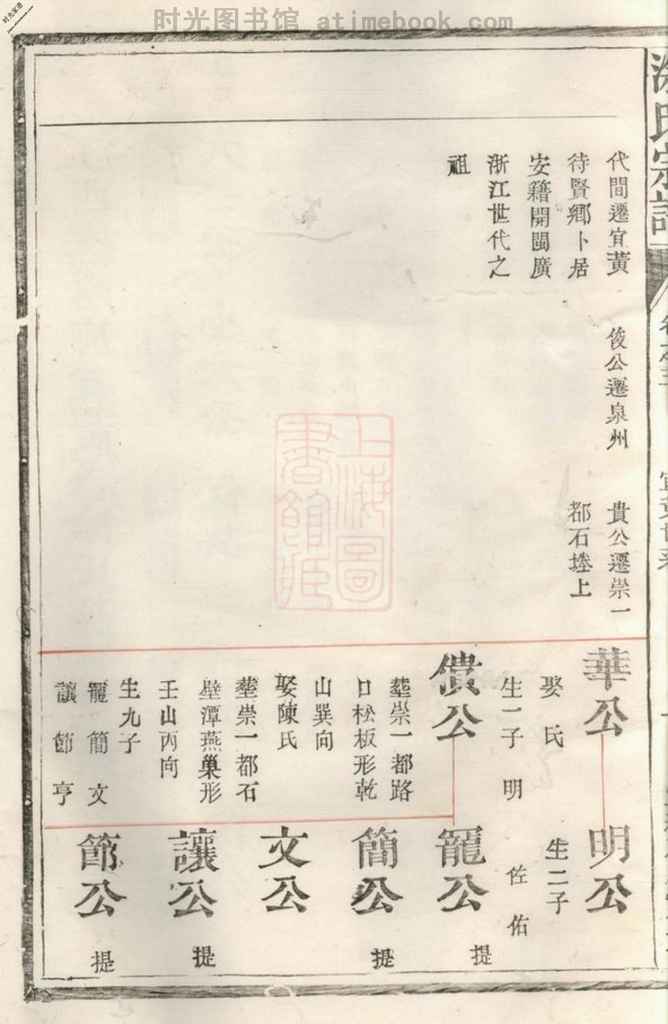 时光图书馆 www.atimebook.com
代間遷宜黃
待賢鄉卜居
安籍開閩廣
浙江世代之
祖
俊公遷泉州
貴公遷崇一
都石墶上
華公
娶 氏
生一子 明
債公
塟崇一都路
口松板形乾
山巽向
娶陳氏
塟崇一都石
壁潭燕巢形
壬山丙向
生九子
寵 簡 文
讓 節 亨
明公
生二子
佐 佑
寵公 提
簡公 提
文公
讓公 提
節公 提
上海图
書館藏